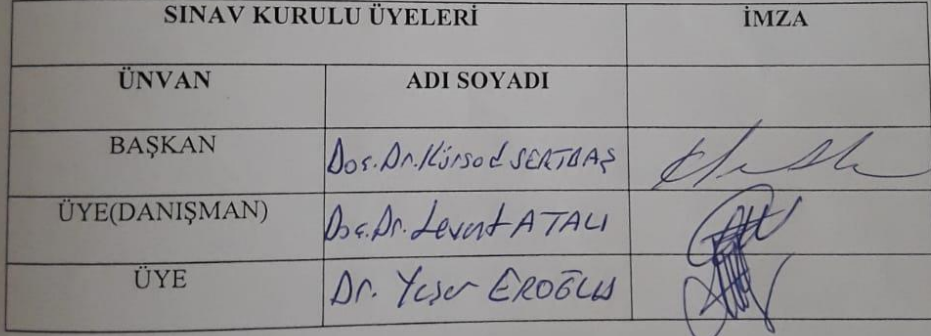 SINAV KURULU ÜYELERİ İMZA
ÜNVAN ADI SOYADI
BAŞKAN Doç.Dr.Kürşad SERTBAŞ
ÜYE(DANIŞMAN) Doç.Dr. Levent ATALI
ÜYE Dr. Yaşar EROĞLU